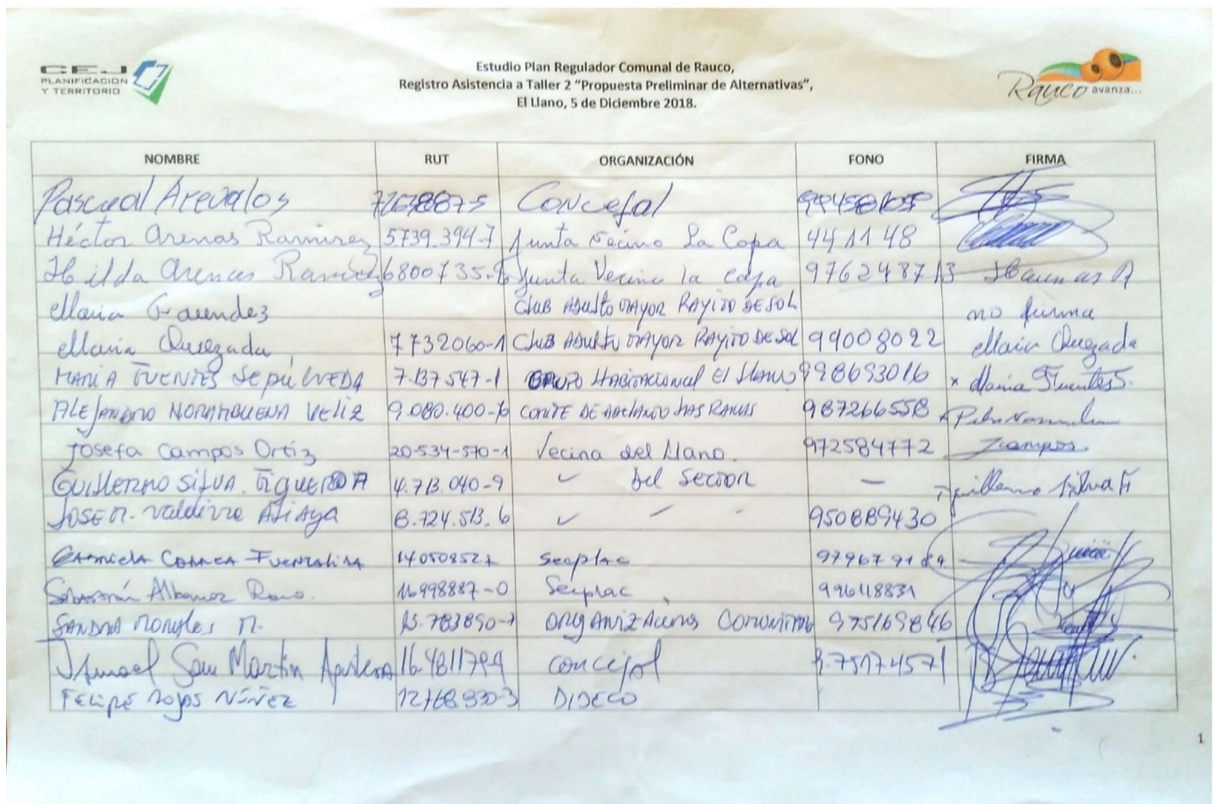 CEJ
PLANIFICACION
Y TERRITORIO
Estudio Plan Regulador Comunal de Rauco,
Registro Asistencia a Taller 2 "Propuesta Preliminar de Alternativas",
El Llano, 5 de Diciembre 2018.
Rauco avanza...
NOMBRE RUT ORGANIZACIÓN FONO FIRMA
Pascual Arevalos Concejal
Héctor Arenas Ramirez 5739.394-7 Junta Vecino La Capa 441148
Hilda Arenas Ramirez Junta Vecino la Capa
Maria Faundez Club Adulto Mayor Rayito de Sol no firma
Maria Quezada 7732060-1 Club Adulto Mayor Rayito de Sol 99008022 Maria Quezada
Maria Fuentes Sepúlveda 7.137.547-1 Grupo Habitacional El Llano 998693016 x Maria Fuentes S.
Alejandro Norambuena Veliz Comite de 987266558
Josefa Campos Ortiz 20-534-570-1 Vecina del Llano. 972584772 Jcampos.
Guillermo Silva Figueroa 4.713.040-9 Del Sector — Guillermo Silva F
Jose M. Valdivia 8.724.513.6 950889430
Gabriela Correa Fuenzalida Secplac
Sebastián Secplac
Sandra Morales M. Organizaciones 975169846
Ismael San Martin Concejal
Felipe Rojas Núñez DIDECO
1